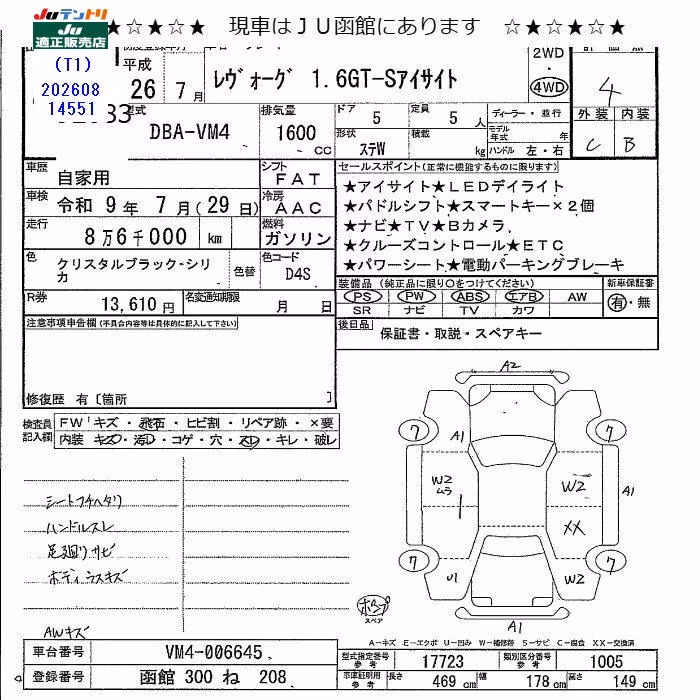 Juテントリ
Ju
適正販売店
★☆★☆★ 現車はＪＵ函館にあります ☆★☆★☆★
(T1)
202608
14551
平成
26 7月
レヴォーグ 1.6GT-Sアイサイト
2WD
・
4WD
4
外装 内装
C B
型式
DBA-VM4
排気量
1600
cc
ドア
5
定員
5 人
形状
ステW
積載
kg
ディーラー・並行
モデル年式 年
ハンドル 左・右
車歴
自家用
シフト
FAT
車検
令和 9年 7月(29日)
冷房
AAC
走行
8万6千000 km
燃料
ガソリン
色
クリスタルブラック・シリカ
色替
色コード
D4S
R券
13,610円
名変通知期限
月 日
セールスポイント(正常に機能するものに限ります)
★アイサイト★ＬＥＤデイライト
★パドルシフト★スマートキー×２個
★ナビ★ＴＶ★Ｂカメラ
★クルーズコントロール★ＥＴＣ
★パワーシート★電動パーキングブレーキ
装備品(純正品に限り○をつけてください)
PS PW ABS エアB AW
SR ナビ TV カワ
新車保証書
有・無
後日品
保証書・取説・スペアキー
注意事項申告欄(不具合内容等は具体的に記入して下さい)
修復歴 有〔箇所 〕
検査員記入欄
FW キズ・飛石・ヒビ割・リペア跡・×要
内装 キズ・汚レ・コゲ・穴・スレ・キレ・破レ
シートフチヘタリ
ハンドルスレ
足廻りサビ
ボディラスキズ
AWキズ
A2
7
7
A1
W2
ムラ
W2
A1
XX
7
7
U1
W2
A1
スペア
A－キズ E－エクボ U－凹み W－補修跡 S－サビ C－腐食 XX－交換済
車台番号
VM4-006645
登録番号
函館 300 ね 208
型式指定番号
参考
17723
類別区分番号
参考
1005
車庫証明用
参考
長さ
469 cm
幅
178 cm
高さ
149 cm